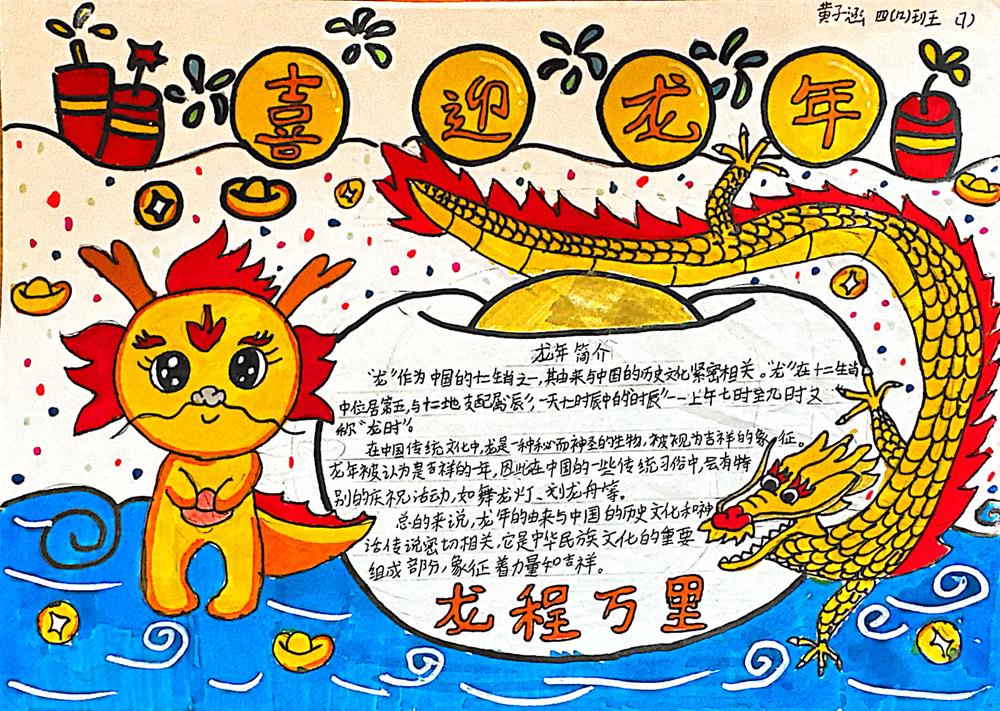 黄子涵 四(12)班 (7)
喜迎龙年
龙年简介
"龙"作为中国的十二生肖之一,其由来与中国的历史文化紧密相关。"龙"在十二生肖
中位居第五,与十二地支配属"辰",一天十二时辰中的"时辰"一上午七时至九时又
称"龙时"。
在中国传统文化中,龙是一种神秘而神圣的生物,被视为吉祥的象征。
龙年被认为是吉祥的一年,因此在中国的一些传统习俗中,会有特
别的庆祝活动,如舞龙灯、划龙舟等。
总的来说,龙年的由来与中国的历史文化和神
话传说密切相关,它是中华民族文化的重要
组成部份,象征着力量和吉祥。
龙程万里